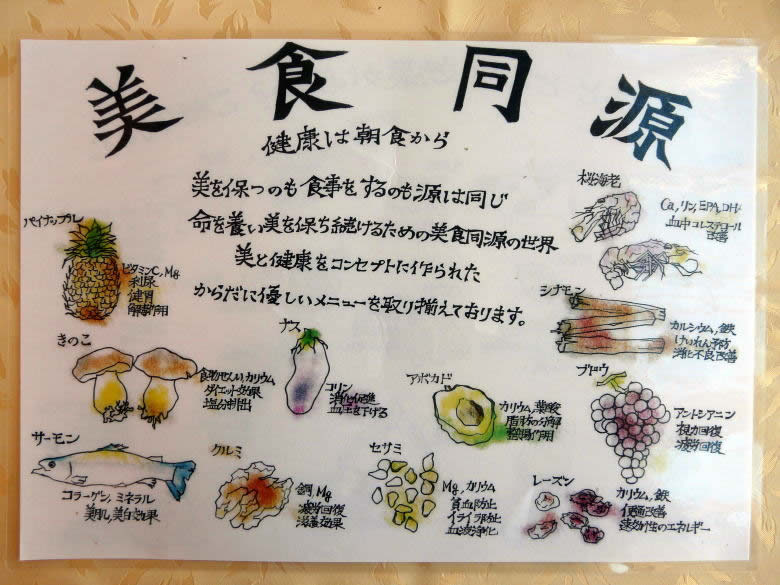 美食同源
健康は朝食から
美を保つのも食事をするのも源は同じ
命を養い美を保ち続けるための美食同源の世界
美と健康をコンセプトに作られた
からだに優しいメニューを取り揃えております。
桜海老
Ca,リン,EPA,DHA
血中コレステロール
改善
パイナップル
ビタミンC,Mg
利尿
健胃
解毒作用
シナモン
カルシウム,鉄
けいれん予防
消化不良改善
きのこ
食物せんい,カリウム
ダイエット効果
塩分排出
ナス
コリン
消化促進
血圧を下げる
アボカド
カリウム,葉酸
脂肪の分解
整腸作用
ブドウ
アントシアニン
視力回復
疲労回復
サーモン
コラーゲン,ミネラル
美肌,美白効果
クルミ
銅,Mg
疲労回復
滋養効果
セサミ
Mg,カリウム
貧血防止
イライラ防止
血液浄化
レーズン
カリウム,鉄
便秘改善
速効性のエネルギー